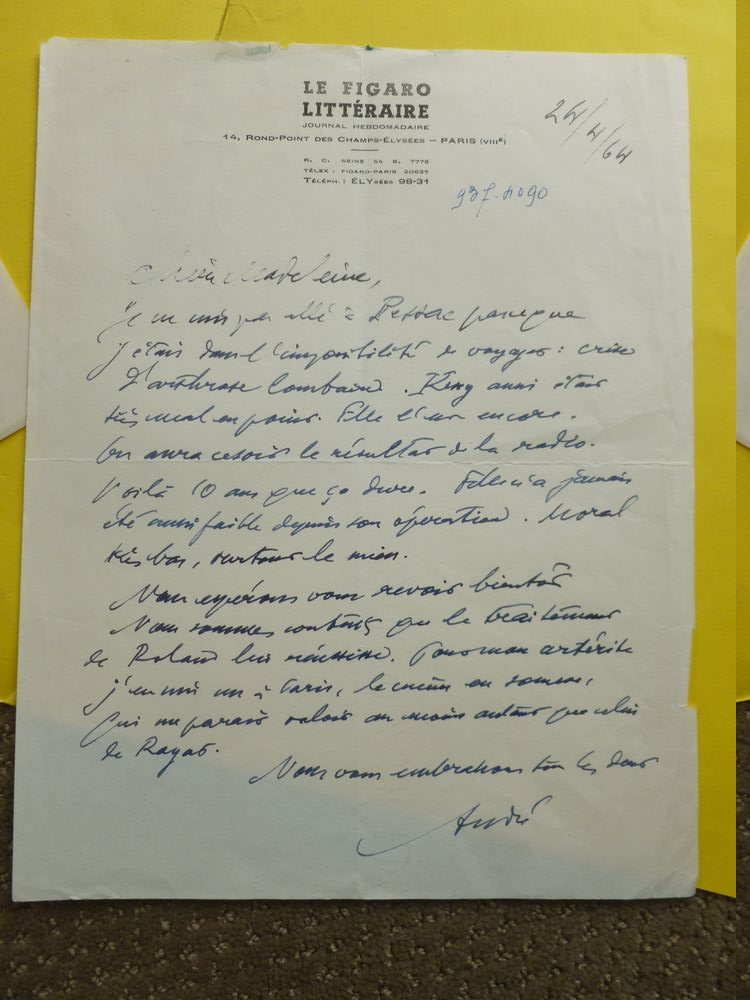 LE FIGARO
LITTÉRAIRE
JOURNAL HEBDOMADAIRE
14, ROND-POINT DES CHAMPS-ÉLYSÉES — PARIS (VIIIE)
R. C. SEINE 54 B. 7775
TÉLEX : FIGARO-PARIS 20837
TÉLÉPH. : ÉLYSÉES 98-31
24/4/64
Chère Madeleine,
Je ne suis pas allé à Pessac parce que
j'étais dans l'impossibilité de voyager : crise
d'arthrose lombaire. Keny aussi était
très mal en point. Elle l'est encore.
On aura ce soir le résultat de la radio.
Voilà 10 ans que ça dure. Elle n'a jamais
été aussi faible depuis son opération. Moral
très bas, surtout le mien.
Nous espérons vous revoir bientôt
Nous sommes contents que le traitement
de Roland lui réussisse. Pour mon artérite
j'en suis un à Paris, le même en somme,
qui me paraît valoir au moins autant que celui
de Royat.
Nous vous embrassons tous les deux
André